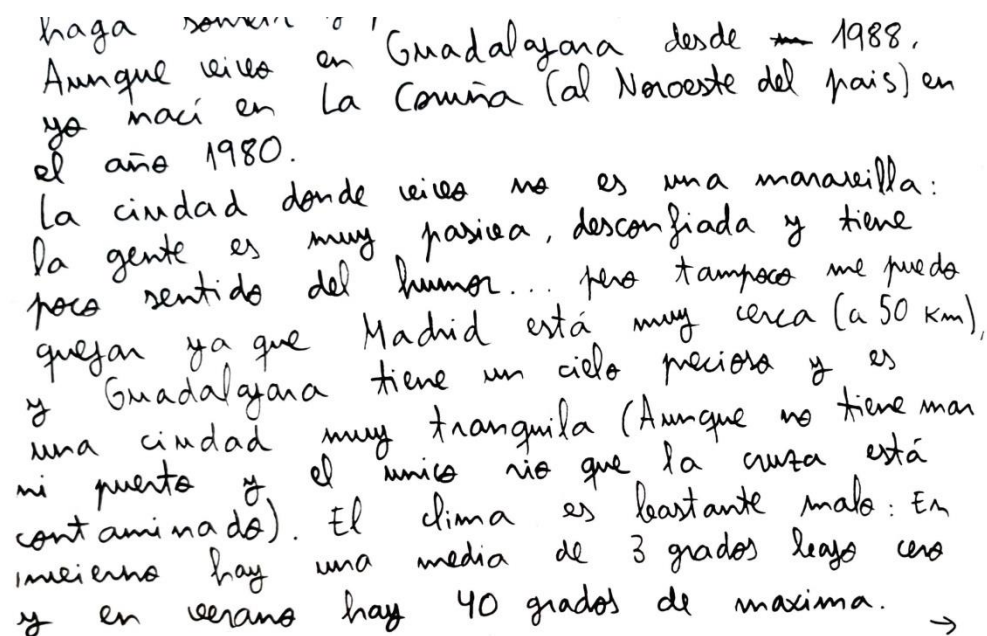 haga
Aunque vivo en Guadalajara desde 1988,
yo nací en La Coruña (al Noroeste del pais) en
el año 1980.
La ciudad donde vivo no es una maravilla:
la gente es muy pasiva, desconfiada y tiene
poco sentido del humor... pero tampoco me puedo
quejar ya que Madrid está muy cerca (a 50 Km),
y Guadalajara tiene un cielo precioso y es
una ciudad muy tranquila (Aunque no tiene mar
ni puerto y el unico rio que la cruza está
contaminado). El clima es bastante malo: En
invierno hay una media de 3 grados bajo cero
y en verano hay 40 grados de maxima.
→